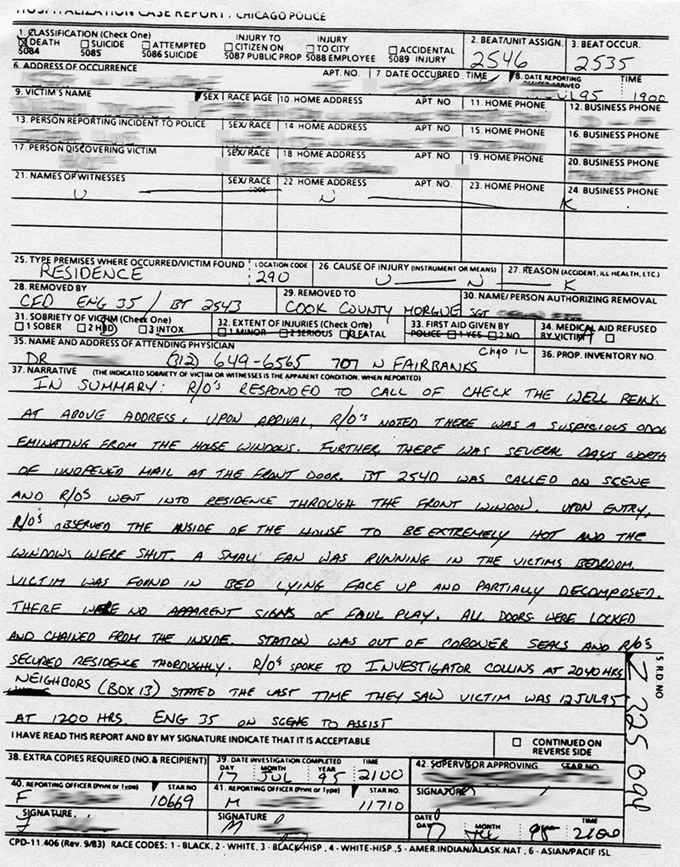 HOSPITALIZATION CASE REPORT / CHICAGO POLICE
1. CLASSIFICATION (Check One)
DEATH SUICIDE ATTEMPTED INJURY TO CITIZEN ON INJURY TO CITY ACCIDENTAL
5084 5085 5086 SUICIDE 5087 PUBLIC PROP 5088 EMPLOYEE 5089 INJURY
2. BEAT/UNIT ASSIGN. 3. BEAT OCCUR.
2546 2535
6. ADDRESS OF OCCURRENCE APT. NO. 7 DATE OCCURRED TIME 8. DATE REPORTING TIME
95 1900
9. VICTIM'S NAME SEX RACE AGE 10. HOME ADDRESS APT. NO 11. HOME PHONE 12. BUSINESS PHONE
13. PERSON REPORTING INCIDENT TO POLICE SEX/RACE 14 HOME ADDRESS APT. NO 15. HOME PHONE 16. BUSINESS PHONE
17. PERSON DISCOVERING VICTIM SEX/RACE 18 HOME ADDRESS APT. NO. 19. HOME PHONE 20. BUSINESS PHONE
21. NAMES OF WITNESSES SEX/RACE 22. HOME ADDRESS APT. NO. 23. HOME PHONE 24 BUSINESS PHONE
U N K
25. TYPE PREMISES WHERE OCCURRED/VICTIM FOUND LOCATION CODE 26. CAUSE OF INJURY (INSTRUMENT OR MEANS) 27. REASON (ACCIDENT, ILL HEALTH, ETC.)
RESIDENCE 290 U N K
28. REMOVED BY 29. REMOVED TO 30. NAME/PERSON AUTHORIZING REMOVAL
CFD ENG 35 / BT 2543 COOK COUNTY MORGUE SGT
31. SOBRIETY OF VICTIM (Check One) 32. EXTENT OF INJURIES (Check One) 33. FIRST AID GIVEN BY 34. MEDICAL AID REFUSED
1 SOBER 2 HBD 3 INTOX 1 MINOR 2 SERIOUS FATAL POLICE 1 YES 2 NO BY VICTIM
35. NAME AND ADDRESS OF ATTENDING PHYSICIAN 36. PROP. INVENTORY NO.
DR (312) 649-6565 707 N FAIRBANKS Chgo IL
37. NARRATIVE (THE INDICATED SOBRIETY OF VICTIM OR WITNESSES IS THE APPARENT CONDITION, WHEN REPORTED)
IN SUMMARY: R/O'S RESPONDED TO CALL OF CHECK THE WELL BEING
AT ABOVE ADDRESS. UPON ARRIVAL, R/O'S NOTED THERE WAS A SUSPICIOUS ODOR
EMINATING FROM THE HOUSE WINDOWS. FURTHER, THERE WAS SEVERAL DAYS WORTH
OF UNOPENED MAIL AT THE FRONT DOOR. BT 2540 WAS CALLED ON SCENE
AND R/OS WENT INTO RESIDENCE THROUGH THE FRONT WINDOW. UPON ENTRY,
R/O'S OBSERVED THE INSIDE OF THE HOUSE TO BE EXTREMELY HOT AND THE
WINDOWS WERE SHUT. A SMALL FAN WAS RUNNING IN THE VICTIMS BEDROOM.
VICTIM WAS FOUND IN BED LYING FACE UP AND PARTIALLY DECOMPOSED.
THERE WERE NO APPARENT SIGNS OF FOUL PLAY. ALL DOORS WERE LOCKED
AND CHAINED FROM THE INSIDE. STATION WAS OUT OF CORONER SEALS AND R/O'S
SECURED RESIDENCE THOROUGHLY. R/O'S SPOKE TO INVESTIGATOR COLLINS AT 2040 HRS
NEIGHBORS (BOX 13) STATED THE LAST TIME THEY SAW VICTIM WAS 12 JUL 95
AT 1200 HRS. ENG 35 ON SCENE TO ASSIST
S R.D NO
Z 325
I HAVE READ THIS REPORT AND BY MY SIGNATURE INDICATE THAT IT IS ACCEPTABLE CONTINUED ON REVERSE SIDE
38. EXTRA COPIES REQUIRED (NO. & RECIPIENT) 39. DATE INVESTIGATION COMPLETED 42. SUPERVISOR APPROVING STAR NO.
DAY MONTH YEAR TIME
17 JUL 95 2100
40. REPORTING OFFICER (Print or Type) STAR NO 41. REPORTING OFFICER (Print or Type) STAR NO. SIGNATURE
F 10669 M 11710
SIGNATURE SIGNATURE DATE MONTH TIME
M
CPD-11.406 (Rev. 9/83) RACE CODES: 1 - BLACK, 2 - WHITE, 3 - BLACK-HISP., 4 - WHITE-HISP., 5 - AMER.INDIAN/ALASK.NAT., 6 - ASIAN/PACIF ISL